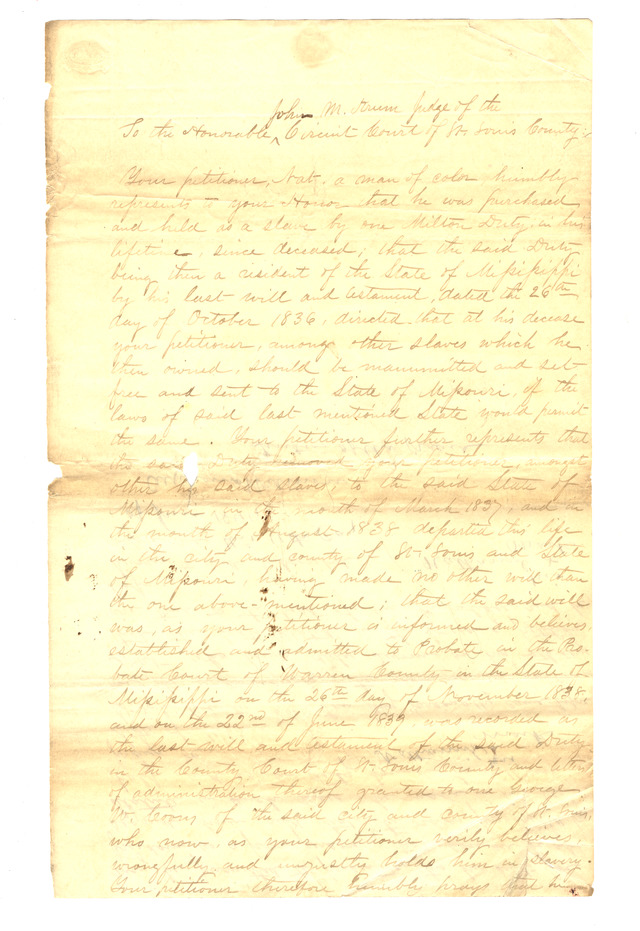 John M. Krum Judge of the
To the Honorable ^ Circuit Court of St. Louis County:
Your petitioner, Nat, a man of color humbly
represents to your Honor that he was purchased
and held as a slave by one Milton Duty, in his
lifetime, since deceased; that the said Duty
being then a resident of the State of Missippi
by his last will and testament, dated the 26th
day of October 1836, directed that at his decease
your petitioner, among other slaves which he
then owned, should be manumitted and set
free and sent to the State of Missouri, if the
laws of said last mentioned State would permit
the same. Your petitioner further represents that
the said Duty removed your petitioner, amongst
other his said slaves, to the said State of
Missouri, in the month of March 1837, and in
the month of August 1838 departed this life
in the city and county of St. Louis and State
of Missouri, having made no other will than
the one above-mentioned; that the said will
was, as your petitioner is informed and believes,
established and admitted to Probate in the Pro-
bate Court of Warren County in the State of
Missippi on the 26th day of November 1838,
and on the 22nd of June 1839, was recorded as
the last will and testament of the said Duty
in the County Court of St. Louis County and letters
of administration thereof granted to one George
W. Coons of the said city and county of St. Louis,
who now, as your petitioner verily believes,
wrongfully and unjustly holds him in slavery.
Your petitioner therefore humbly prays that he